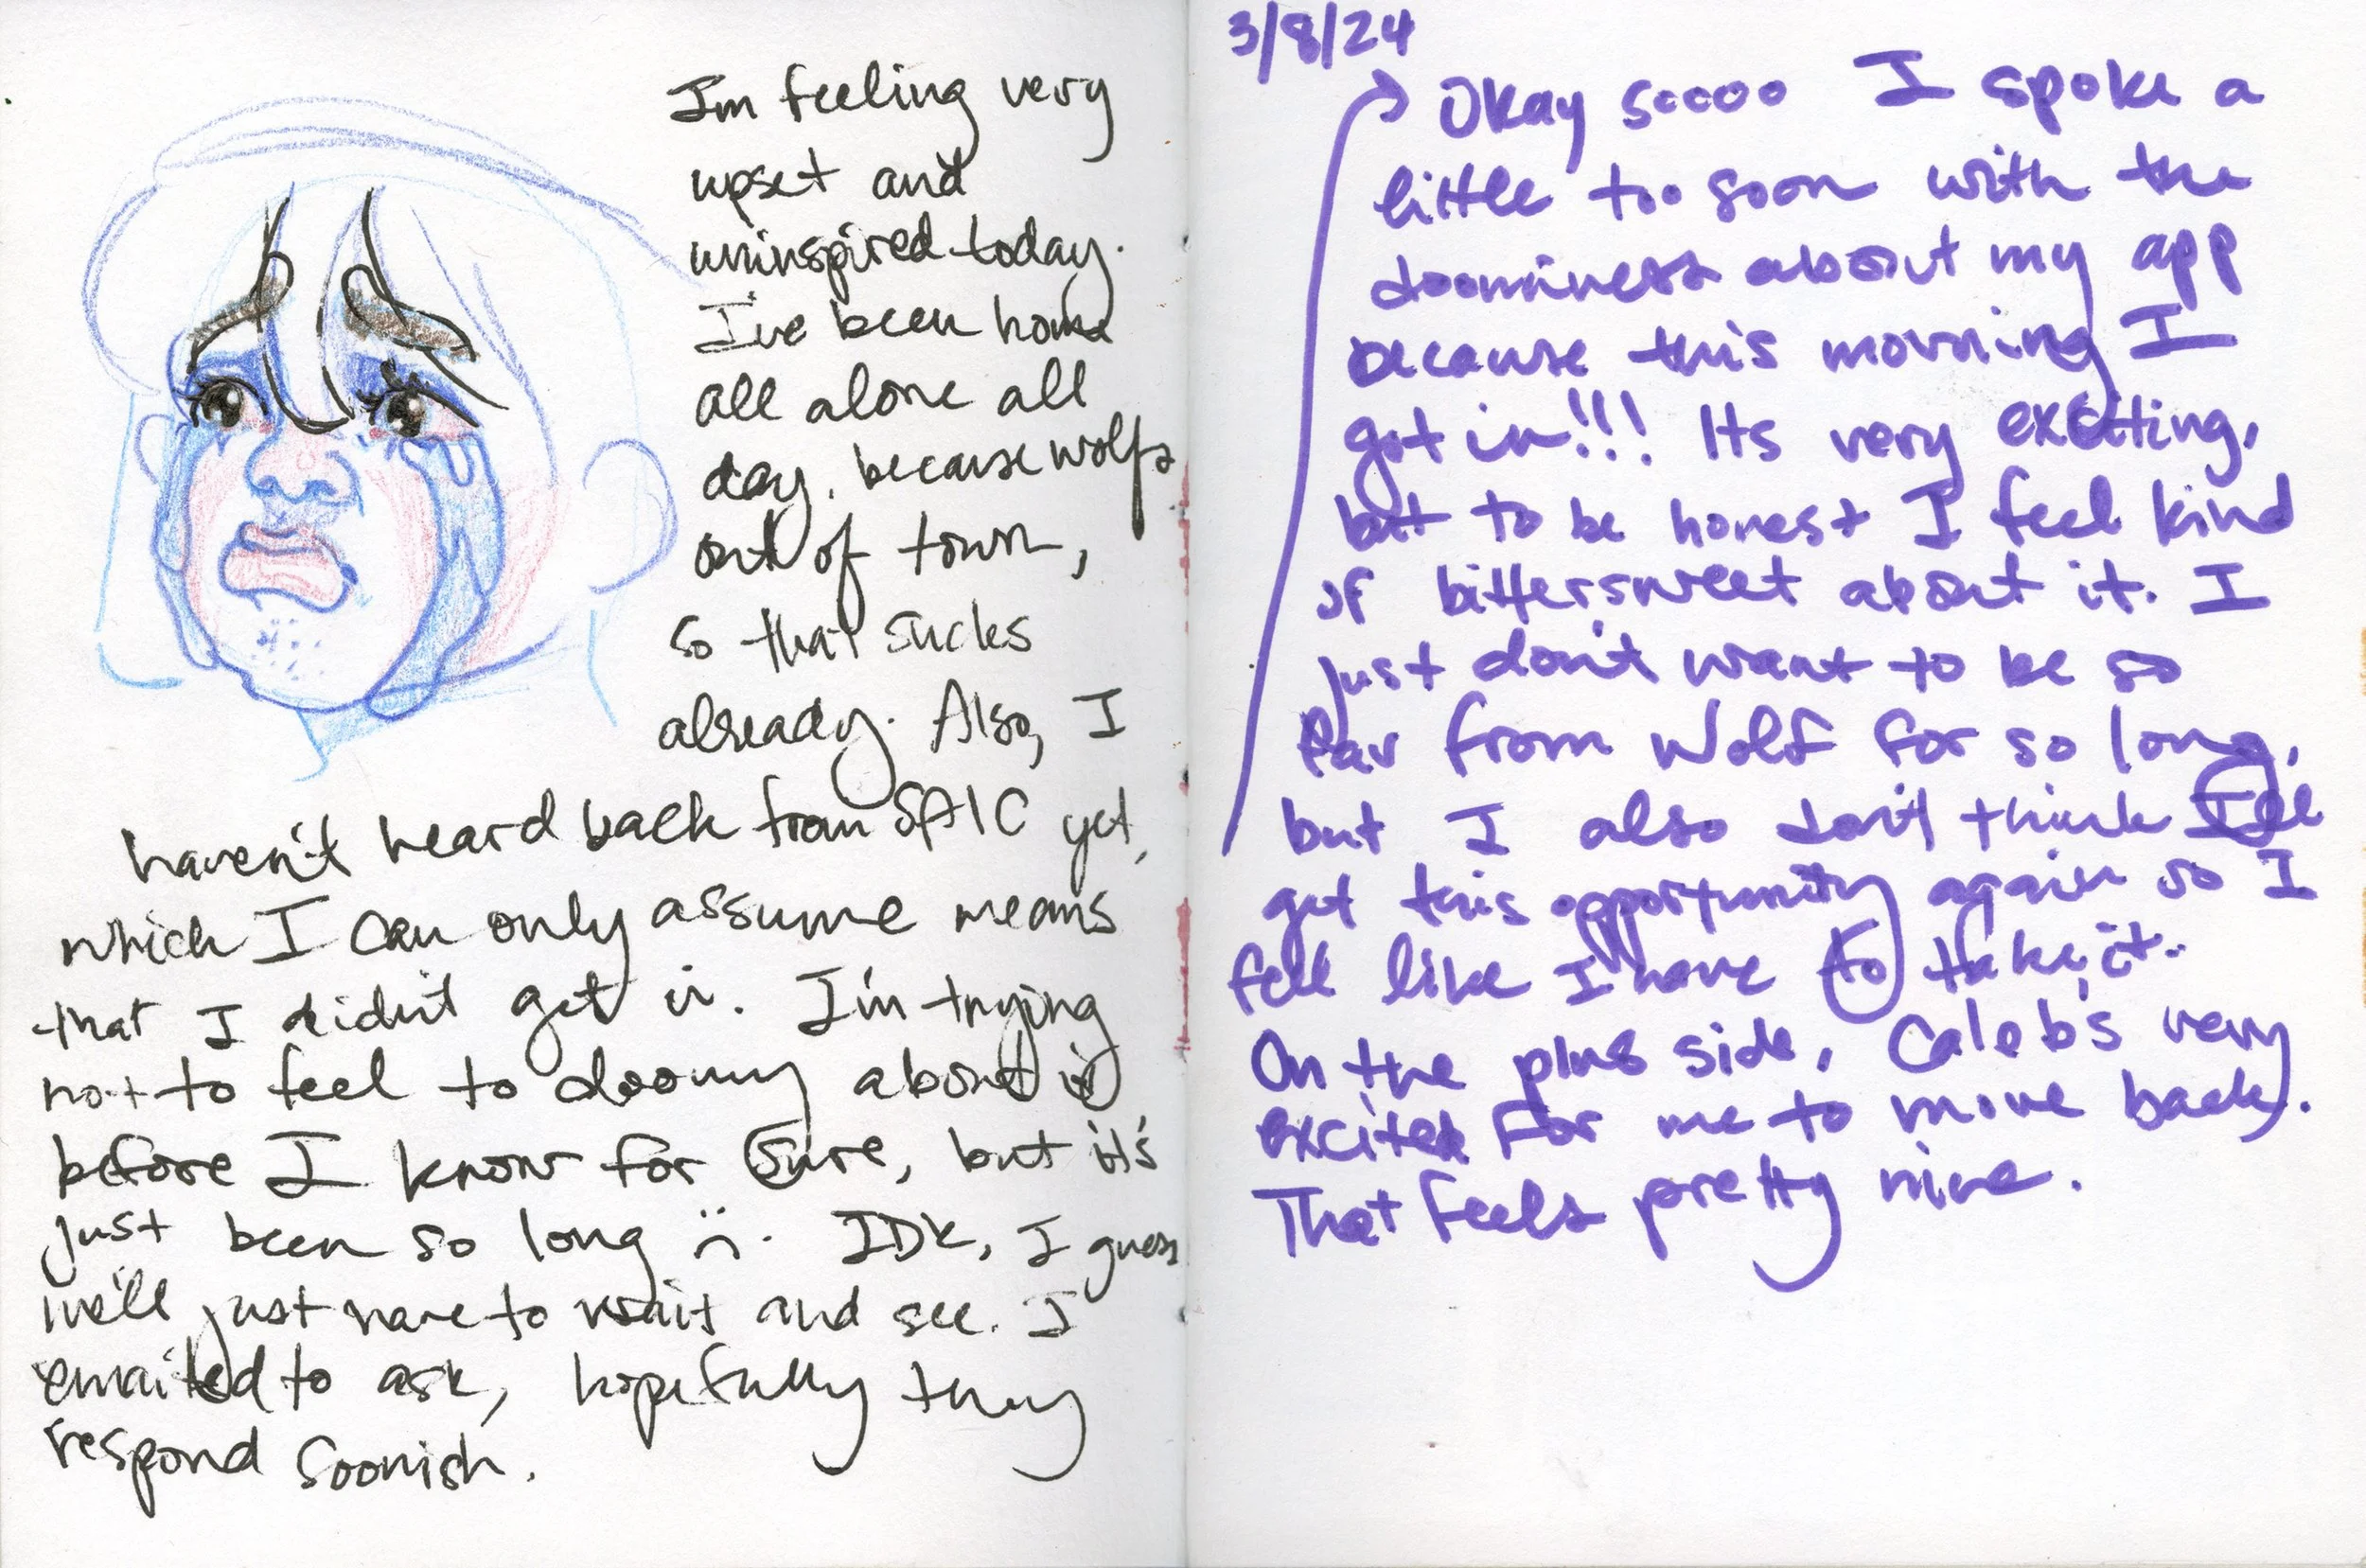 I'm feeling very
upset and
uninspired today.
I've been home
all alone all
day, because wolfs
out of town,
so that sucks
already. Also, I
haven't heard back from SAIC yet,
which I can only assume means
that I didn't get in. I'm trying
not to feel to doomy about it
before I know for sure, but it's
just been so long :(. IDK, I guess
we'll just have to wait and see. I
emailed to ask, hopefully they
respond soonish.
3/8/24
Okay soooo I spoke a
little too soon with the
doominess about my app
because this morning I
got in!!! Its very exciting,
but to be honest I feel kind
of bittersweet about it. I
just don't want to be so
far from Wolf for so long,
but I also don't think I'll
get this opportunity again so I
feel like I have to take it..
On the plus side, Caleb's very
excited for me to move back.
That feels pretty nice.